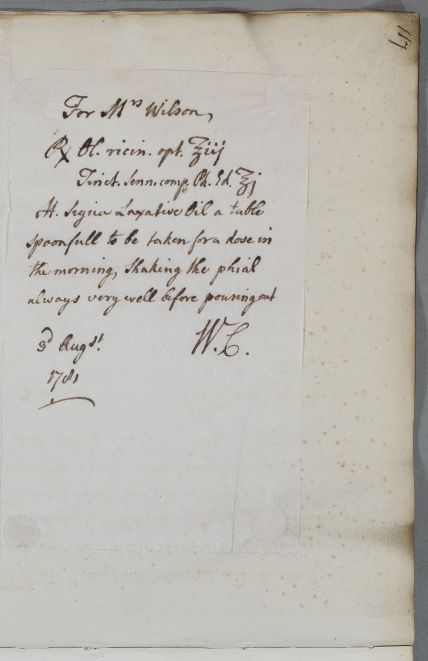 117
For Mrs Wilson,
℞ Ol. ricin. opt. ℥iij
Tinct. Senn. comp. Ph. Ed. ℥j
M. Signa Laxative Oil a table
spoonfull to be taken for a dose in
the morning, shaking the phial
always very well before pouring out
3d Augst.
W.C.
1781